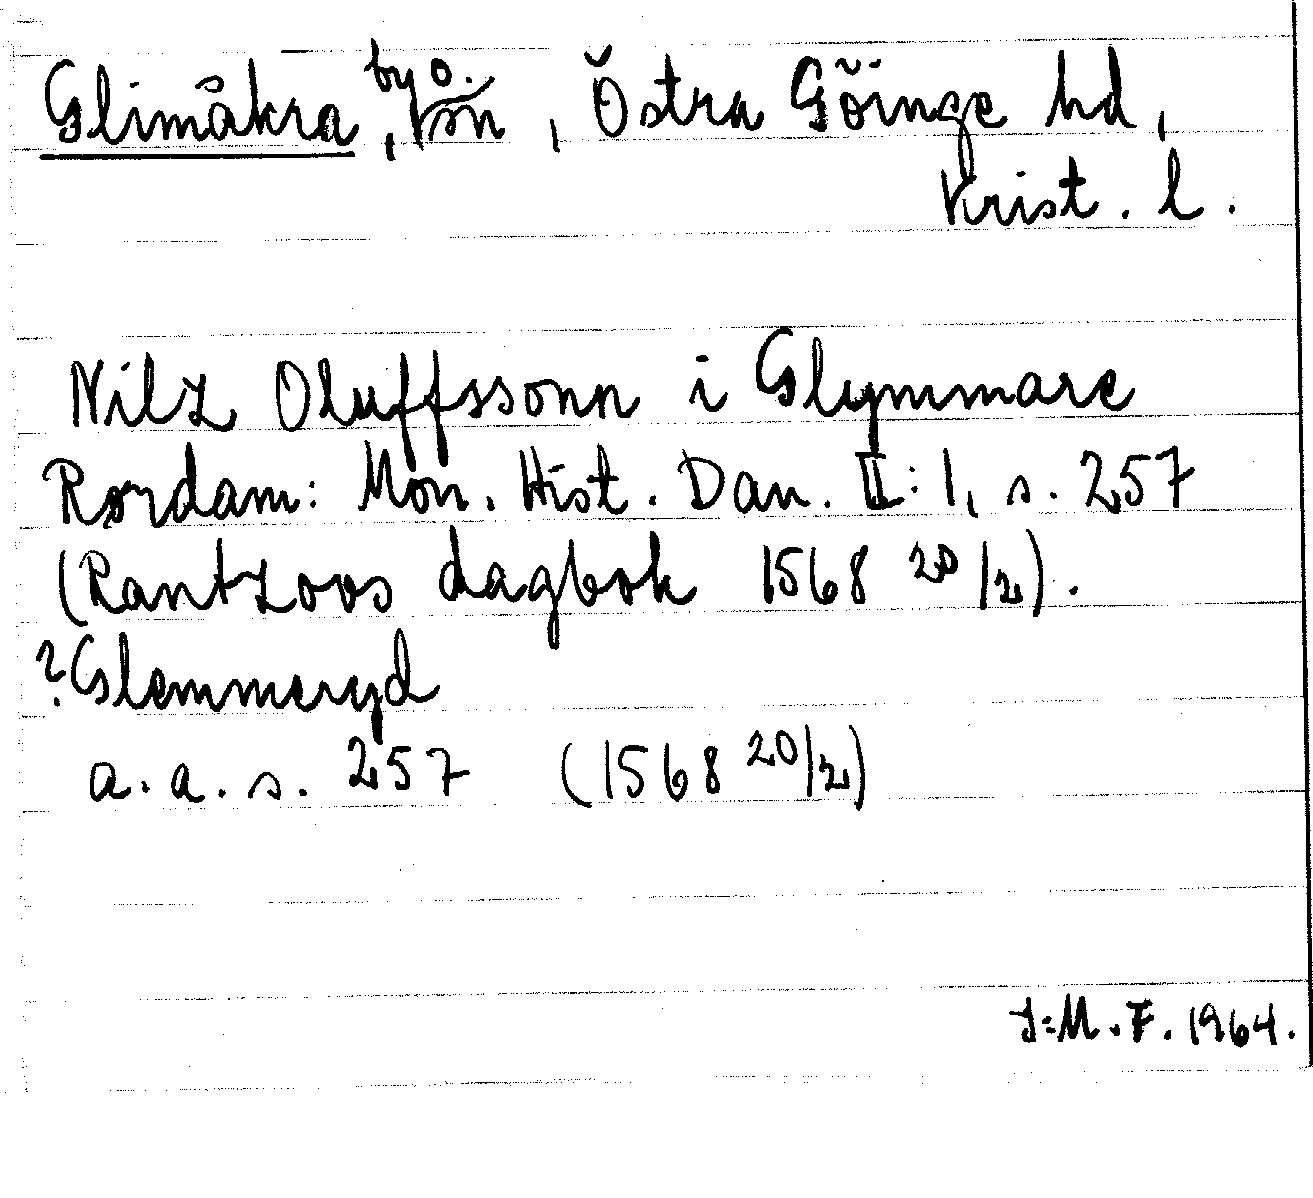 Glimåkra, by o. sn, Östra Göinge hd,
Krist. l.
Nilz Oluffssonn i Glymmare
Rørdam: Mon. Hist. Dan. II: 1, s. 257
(Rantzoos dagbok 1568 20/2).
? Glemmeryd
a. a. s. 257 (1568 20/2)
J:M.F. 1964.